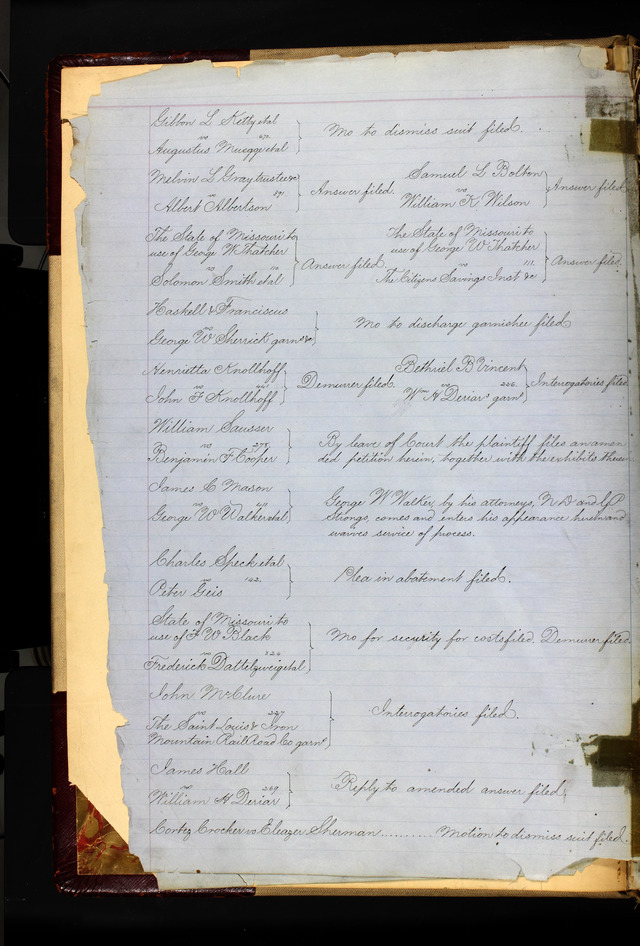 Gibbon L Ketty etal
vs
Augustus Mueggeetal
Mo to dismiss suit filed.
Melvin L Gray trustee &c
vs 391.
Albert Albertson
Answer filed.
Samuel L Bolton
vs
William K. Wilson
Answer filed
The State of Missouri to
use of George W Thatcher
vs
Solomon Smith etal
Answer filed.
The State of Missouri to
use of George W Thatcher
vs 111.
The Citizens Savings Inst &c
Answer filed.
Haskell & Franciscus
vs
George W Sherrick garn &c
Mo to discharge garnishee filed
Henrietta Knollhoff
vs
John F Knollhoff
Demurrer filed.
Bethuel B Vincent
vs 256.
Wm H Deriar garn
Interrogatories filed
William Sausser
vs 278.
Benjamin F Cooper
By leave of Court the plaintiff files an amen
ded petition herein, together with the exhibits therein
James C Mason
vs
George W Walker etal
George W Walker, by his attorneys, N D and G P
Strong, comes and enters his appearance herein and
waives service of process.
Charles Speck etal
vs 142.
Peter Geis
Plea in abatement filed.
State of Missouri to
use of F W Black
vs 324
Frederick Dattelzweig etal
Mo for security for costs filed. Demurrer filed
John McClure
vs 227
The Saint Louis & Iron
Mountain Rail Road Co garn
Interrogatories filed.
James Hall
vs 269
William H Deriar
Reply to amended answer filed,
Cortez Crocker vs Eleazer Sherman .......... Motion to dismiss suit filed.